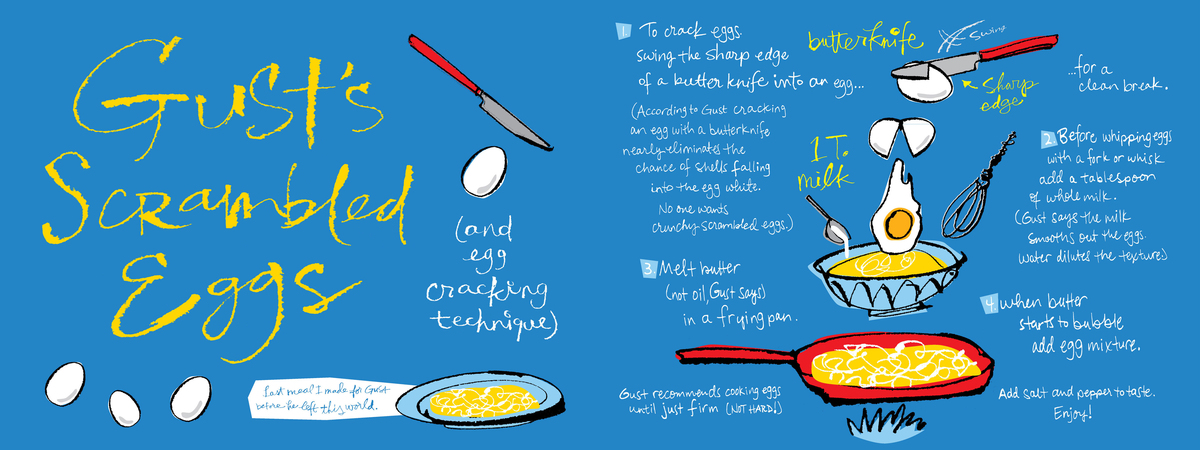 Gust's
Scrambled
Eggs
(and
egg
cracking
technique)
Last meal I made for Gust
before he left this world.
1. To crack eggs
swing the sharp edge
of a butter knife into an egg...
(According to Gust cracking
an egg with a butterknife
nearly eliminates the
chance of shells falling
into the egg white.
No one wants
crunchy scrambled eggs.)
butterknife
swing
sharp
edge
...for a
clean break.
1 T.
milk
2. Before whipping eggs
with a fork or whisk
add a tablespoon
of whole milk.
(Gust says the milk
smooths out the eggs.
Water dilutes the texture)
3. Melt butter
(not oil, Gust says)
in a frying pan.
4. when butter
starts to bubble
add egg mixture.
Gust recommends cooking eggs
until just firm (NOT HARD!)
Add salt and pepper to taste.
Enjoy!